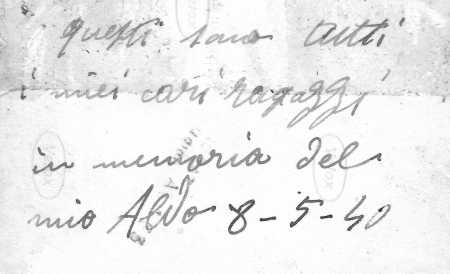 questi sono tutti
i miei cari ragazzi
in memoria del
mio Aldo 8-5-40